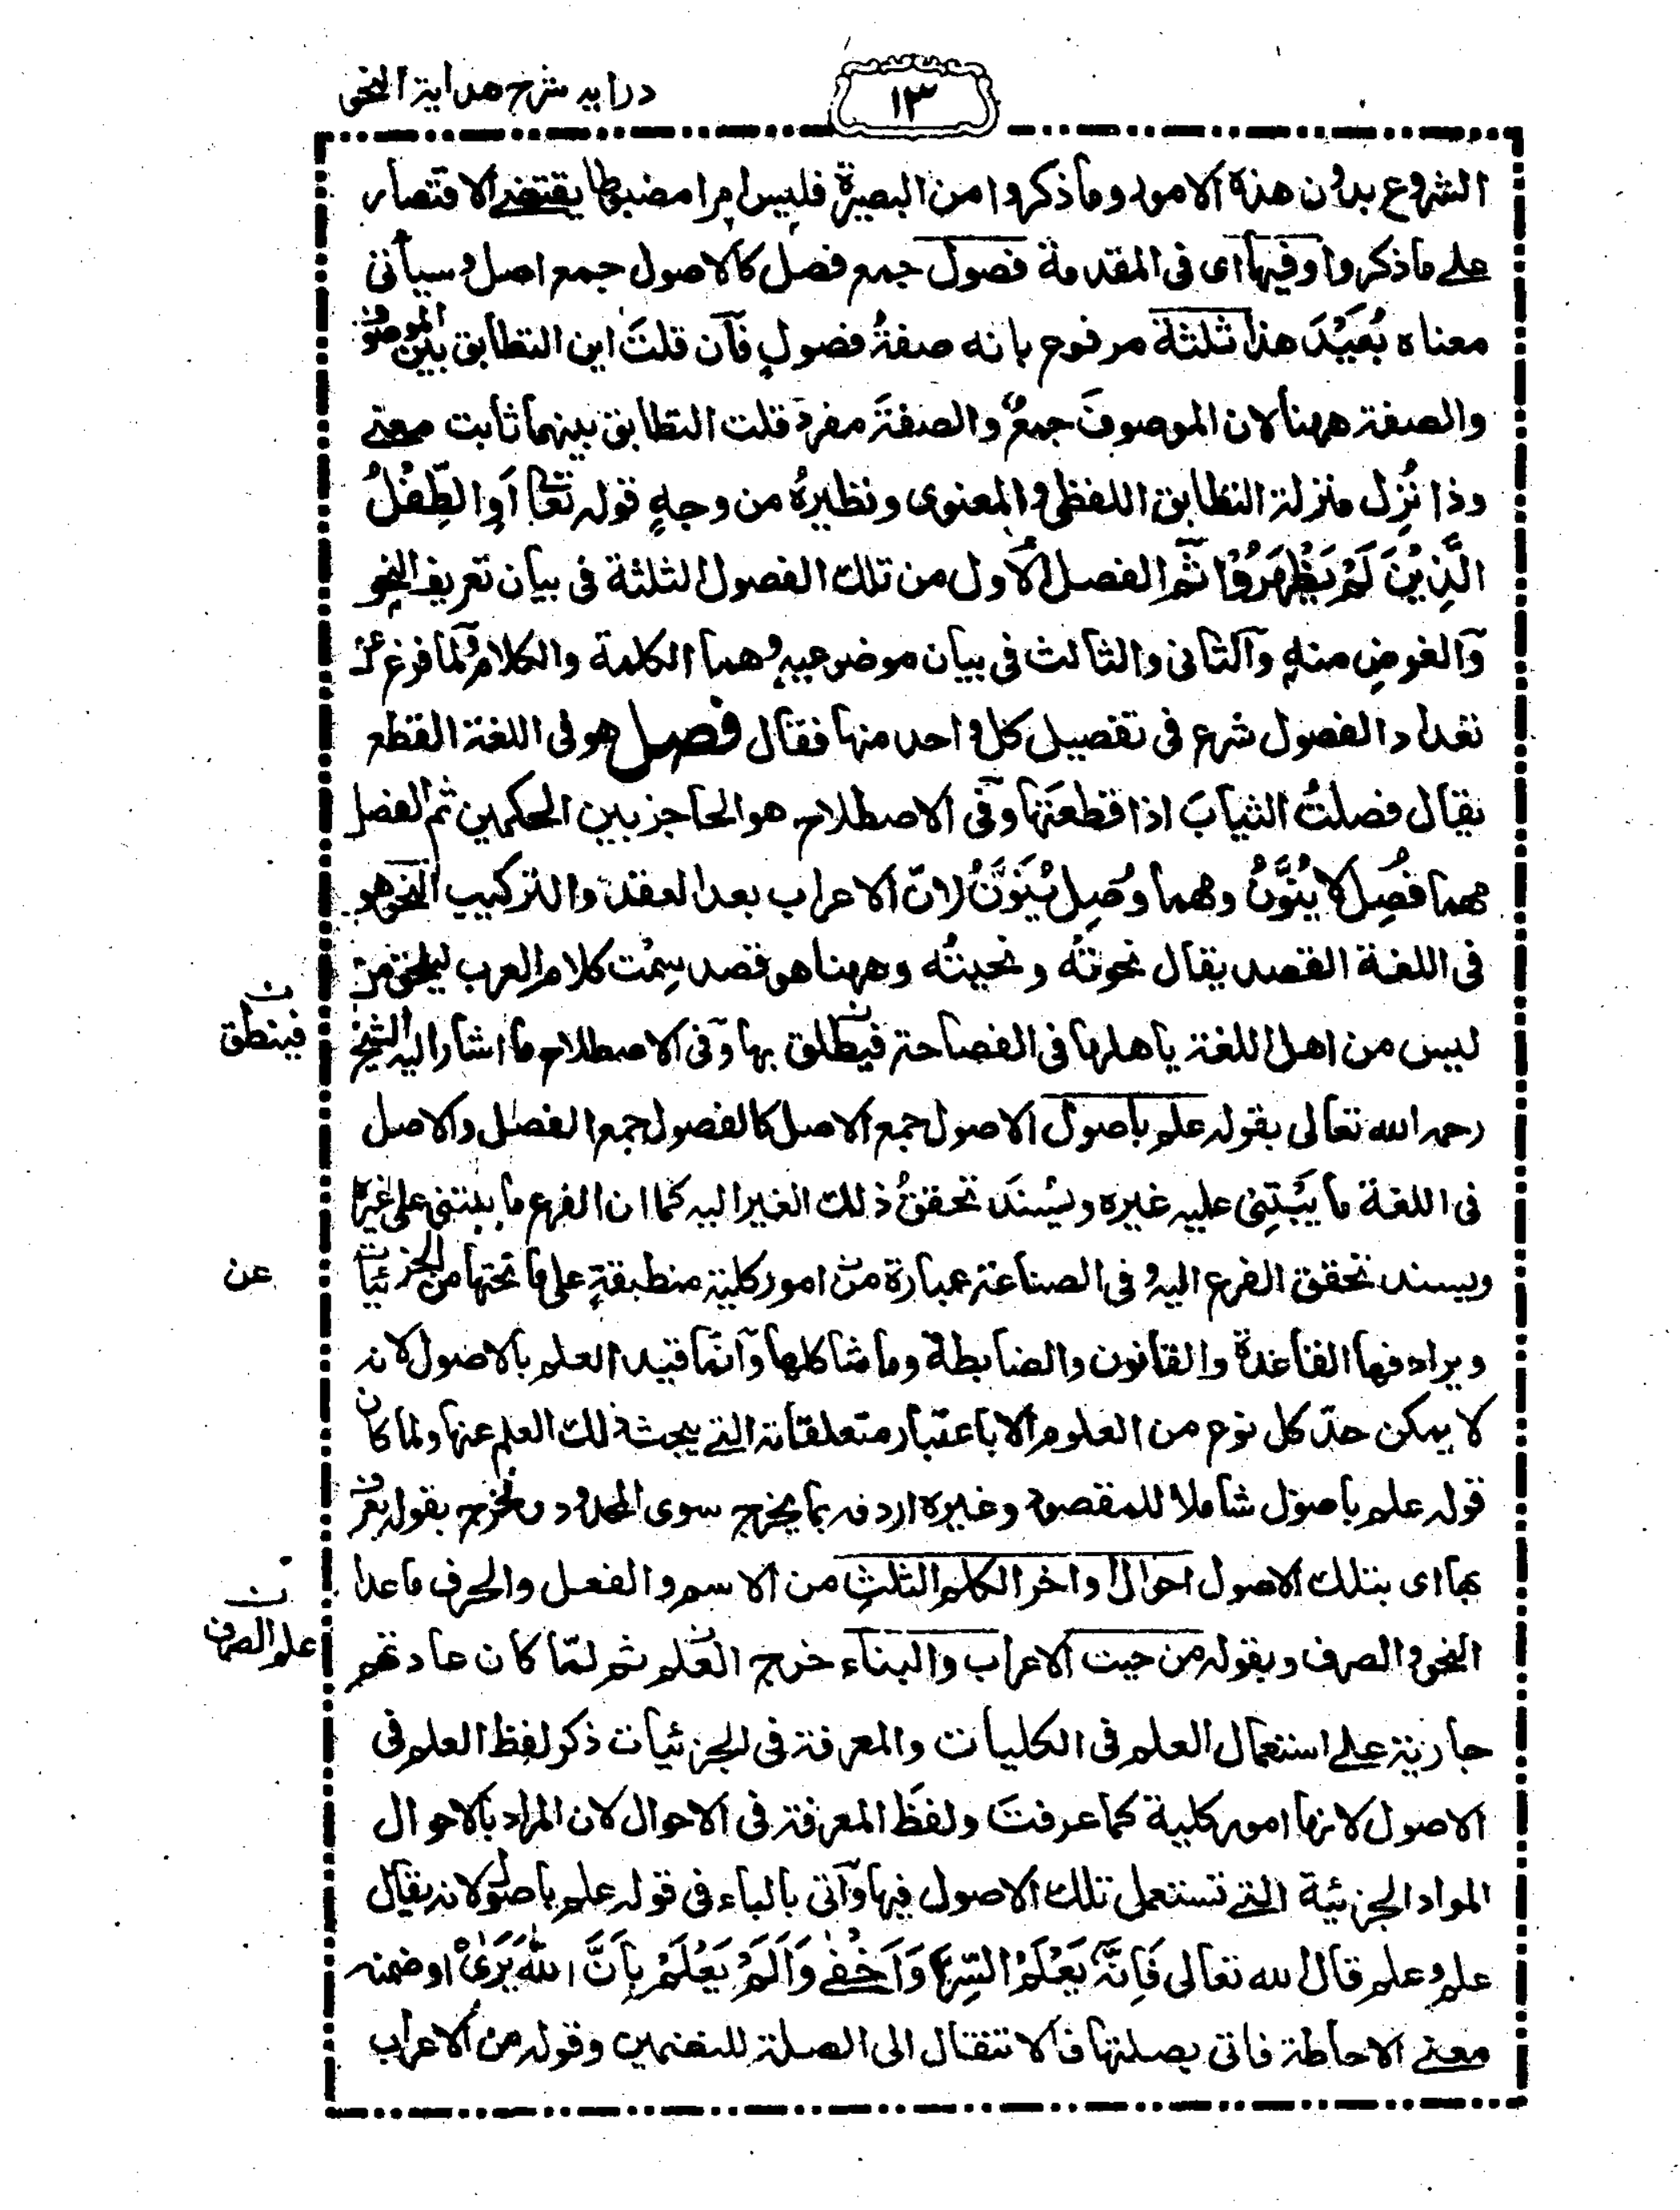 درایه شرح هدایة النحو
١٣
الشروع بدون هذه الامور وما ذكروا من البصيرة فليس امرا مضبوطا يقتضي الاقتصار
على ما ذكروا وفيها اى فى المقدمة فصول جمع فصل كالاصول جمع اصل وسيأتى
معناه بُعَيْدَ هذا ثلثة مرفوع بانه صفةُ فصولٍ فآن قلتَ اين التطابق بين الموصوف
والصفة ههنا لان الموصوفَ جمعٌ والصفةَ مفرد قلت التطابق بينهما ثابت معنى
وذا نُزِل منزلة التطابق اللفظى والمعنوى ونظيرهُ من وجهٍ قوله تعا اَوِ الطِّفْلُ
الَّذِيْنَ لَمْ يَظْهَرُوْا ثم الفصل الاول من تلك الفصول الثلثة فى بيان تعريف النحو
والغرضِ منه والثانى والثالث فى بيان موضوعيه وهما الكلمة والكلام ولما فرغ عن
تعداد الفصول شرع فى تفصيل كل واحد منها فقال فصل هو فى اللغة القطع
يقال فصلتُ الثيابَ اذا قطعتَها وفى الاصطلاح هو الحاجز بين الحكمين ثم الفصل
مهما فُصِل لا يُنَوَّنُ ومهما وُصِل يُنَوَّنُ لانّ الاعراب بعد العقد والتركيب النحو هو
فى اللغة القصد يقال نحوتُه ونحيتُه وههنا هو قصد سمت كلام العرب ليلحق من
ليس من اهل اللغة باهلها فى الفصاحة فيطلق بها وفى الاصطلاح ما اشار اليه الشيخ
فينطق
رحمه الله تعالى بقوله علم باصول الاصول جمع الاصل كالفصول جمع الفصل والاصل
فى اللغة ما يَبْتَنِى عليه غيره ويُسندَ تحققُ ذلك الغير اليه كما ان الفرع ما يبتنى على غيره
ويسند تحقق الفرع اليه وفى الصناعة عبارة من امور كلية منطبقةٍ على ما تحتها من الجزئيات
عن
ويرادفها القاعدة والقانون والضابطة وما شاكلها وانما قيد العلم بالاصول لانه
لا يمكن حدّ كل نوع من العلوم الا باعتبار متعلقاته التى يبحث ذلك العلم عنها ولما كان
قوله علم باصول شاملا للمقصود وغيره اردفه بما يخرج سوى المحدود فخرج بقوله يعرف
بها اى بتلك الاصول احوال اواخر الكلم الثلث من الاسم والفعل والحرف ما عدا
النحو والصرف وبقوله من حيث الاعراب والبناء خرج العلم ثم لمّا كان عادتهم
علم الصرف
جارية على استعمال العلم فى الكليات والمعرفة فى الجزئيات ذكر لفظ العلم فى
الاصول لانها امور كلية كما عرفتَ ولفظَ المعرفة فى الاحوال لان المراد بالاحوال
المواد الجزئية التى تستعمل تلك الاصول فيها وآتى بالباء فى قوله علم باصول لانه يقال
علم و علم قال الله تعالى فَاِنَّهٗ يَعْلَمُ السِّرَّ وَاَخْفٰى وَاَلَمْ يَعْلَمْ بِاَنَّ اللّٰهَ يَرٰى او ضمنه
معنى الاحاطة فاتى بصلتها فالانتقال الى الصلة للتضمين وقوله من الاعراب